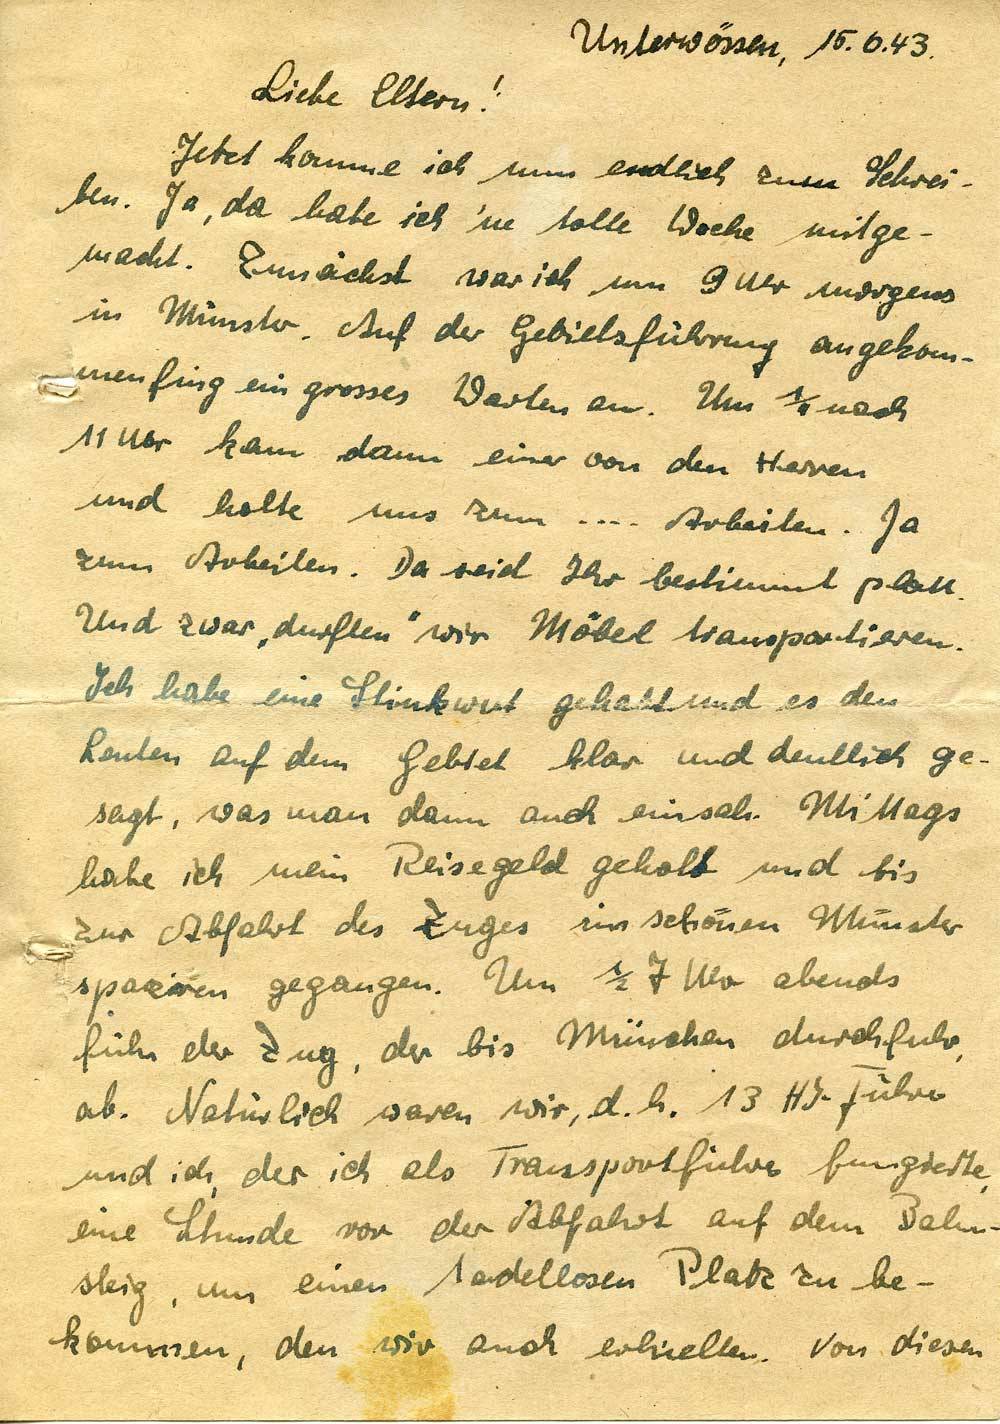 Unterwössen, 15.6.43.
Liebe Eltern!
Jetzt komme ich nun endlich zum Schrei-
ben. Ja, da habe ich 'ne tolle Woche mitge-
macht. Zunächst war ich um 9 Uhr morgens
in Münster. Auf der Gebietsführung angekom-
men fing ein grosses Warten an. Um 1/4 nach
11 Uhr kam dann einer von den Herren
und holte uns zum .... Arbeiten. Ja
zum Arbeiten. Da seid Ihr bestimmt platt.
Und zwar „durften“ wir Möbel transportieren.
Ich habe eine Stinkwut gehabt und es den
Leuten auf dem Gebiet klar und deutlich ge-
sagt, was man dann auch einsah. Mittags
habe ich mein Reisegeld geholt und bis
zur Abfahrt des Zuges im schönen Münster
spaziren gegangen. Um 1/2 7 Uhr abends
fuhr der Zug, der bis München durchfuhr,
ab. Natürlich waren wir, d.h. 13 HJ-Führer
und ich, der ich als Transportführer fungierte,
eine Stunde vor der Abfahrt auf dem Bahn-
steig, um einen tadellosen Platz zu be-
kommen, den wir auch erhielten. Von diesen